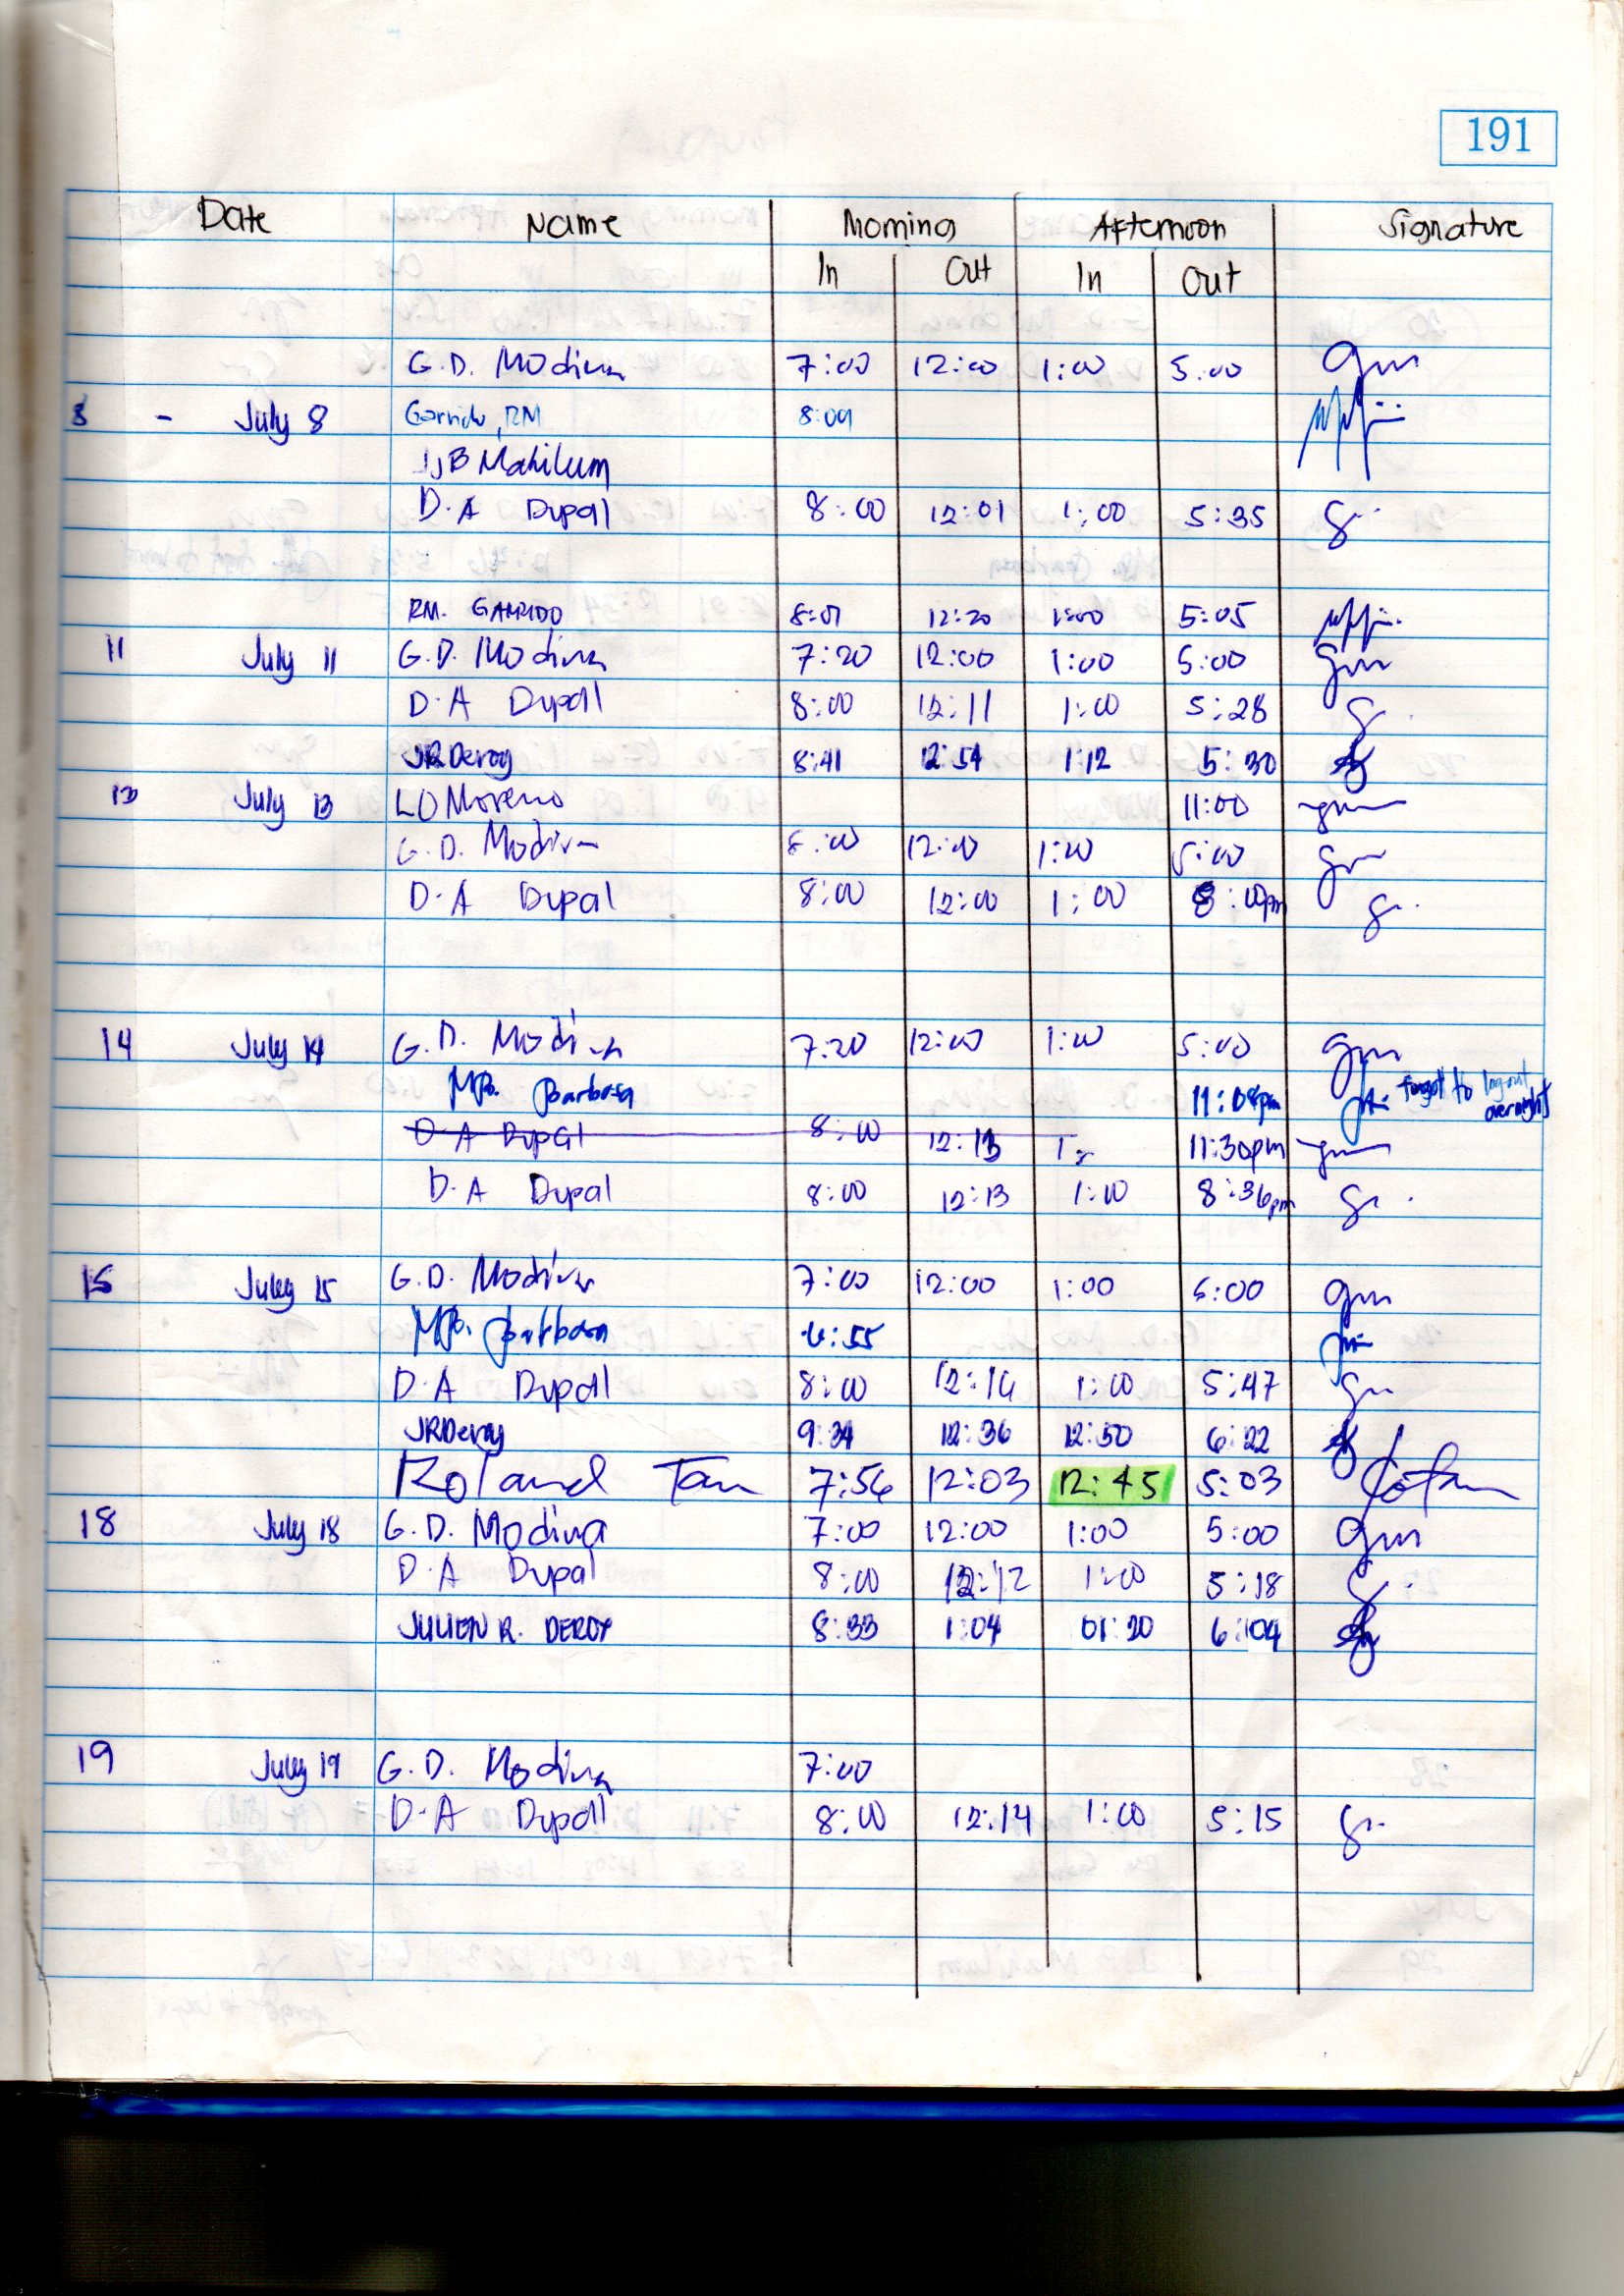 191
Date Name Morning Afternoon Signature
In Out In Out
G.D. Modina 7:00 12:00 1:00 5:00 gm
8 - July 8 Garrido, RM 8:09
JJB Mahilum
D.A Dupal 8:00 12:01 1:00 5:35
RM. GARRIDO 8:01 12:20 1:00 5:05
11 July 11 G.D. Modina 7:20 12:00 1:00 5:00 gm
D.A Dupal 8:00 12:11 1:00 5:28
JRDeroy 8:41 12:54 1:12 5:30
13 July 13 LO Moreno 11:00
G.D. Modina 8:00 12:00 1:00 5:00 gm
D.A Dupal 8:00 12:00 1:00 8:00pm
14 July 14 G.D. Modina 7:20 12:00 1:00 5:00 gm
MP. Barbosa 11:08pm forgot to logout
overnight
D.A Dupal 8:00 12:13 1: 11:30pm
D.A Dupal 8:00 12:13 1:00 8:36pm
15 July 15 G.D. Modina 7:00 12:00 1:00 5:00 gm
MP. Barbosa 6:55
D.A Dupal 8:00 12:14 1:00 5:47
JRDeroy 9:34 12:36 12:50 6:22
Roland Tan 7:56 12:03 12:45 5:03
18 July 18 G.D. Modina 7:00 12:00 1:00 5:00 gm
D.A Dupal 8:00 12:12 1:00 5:18
JULIEN R. DEROY 8:33 1:04 01:20 6:04
19 July 19 G.D. Modina 7:00
D.A Dupal 8:00 12:14 1:00 5:15